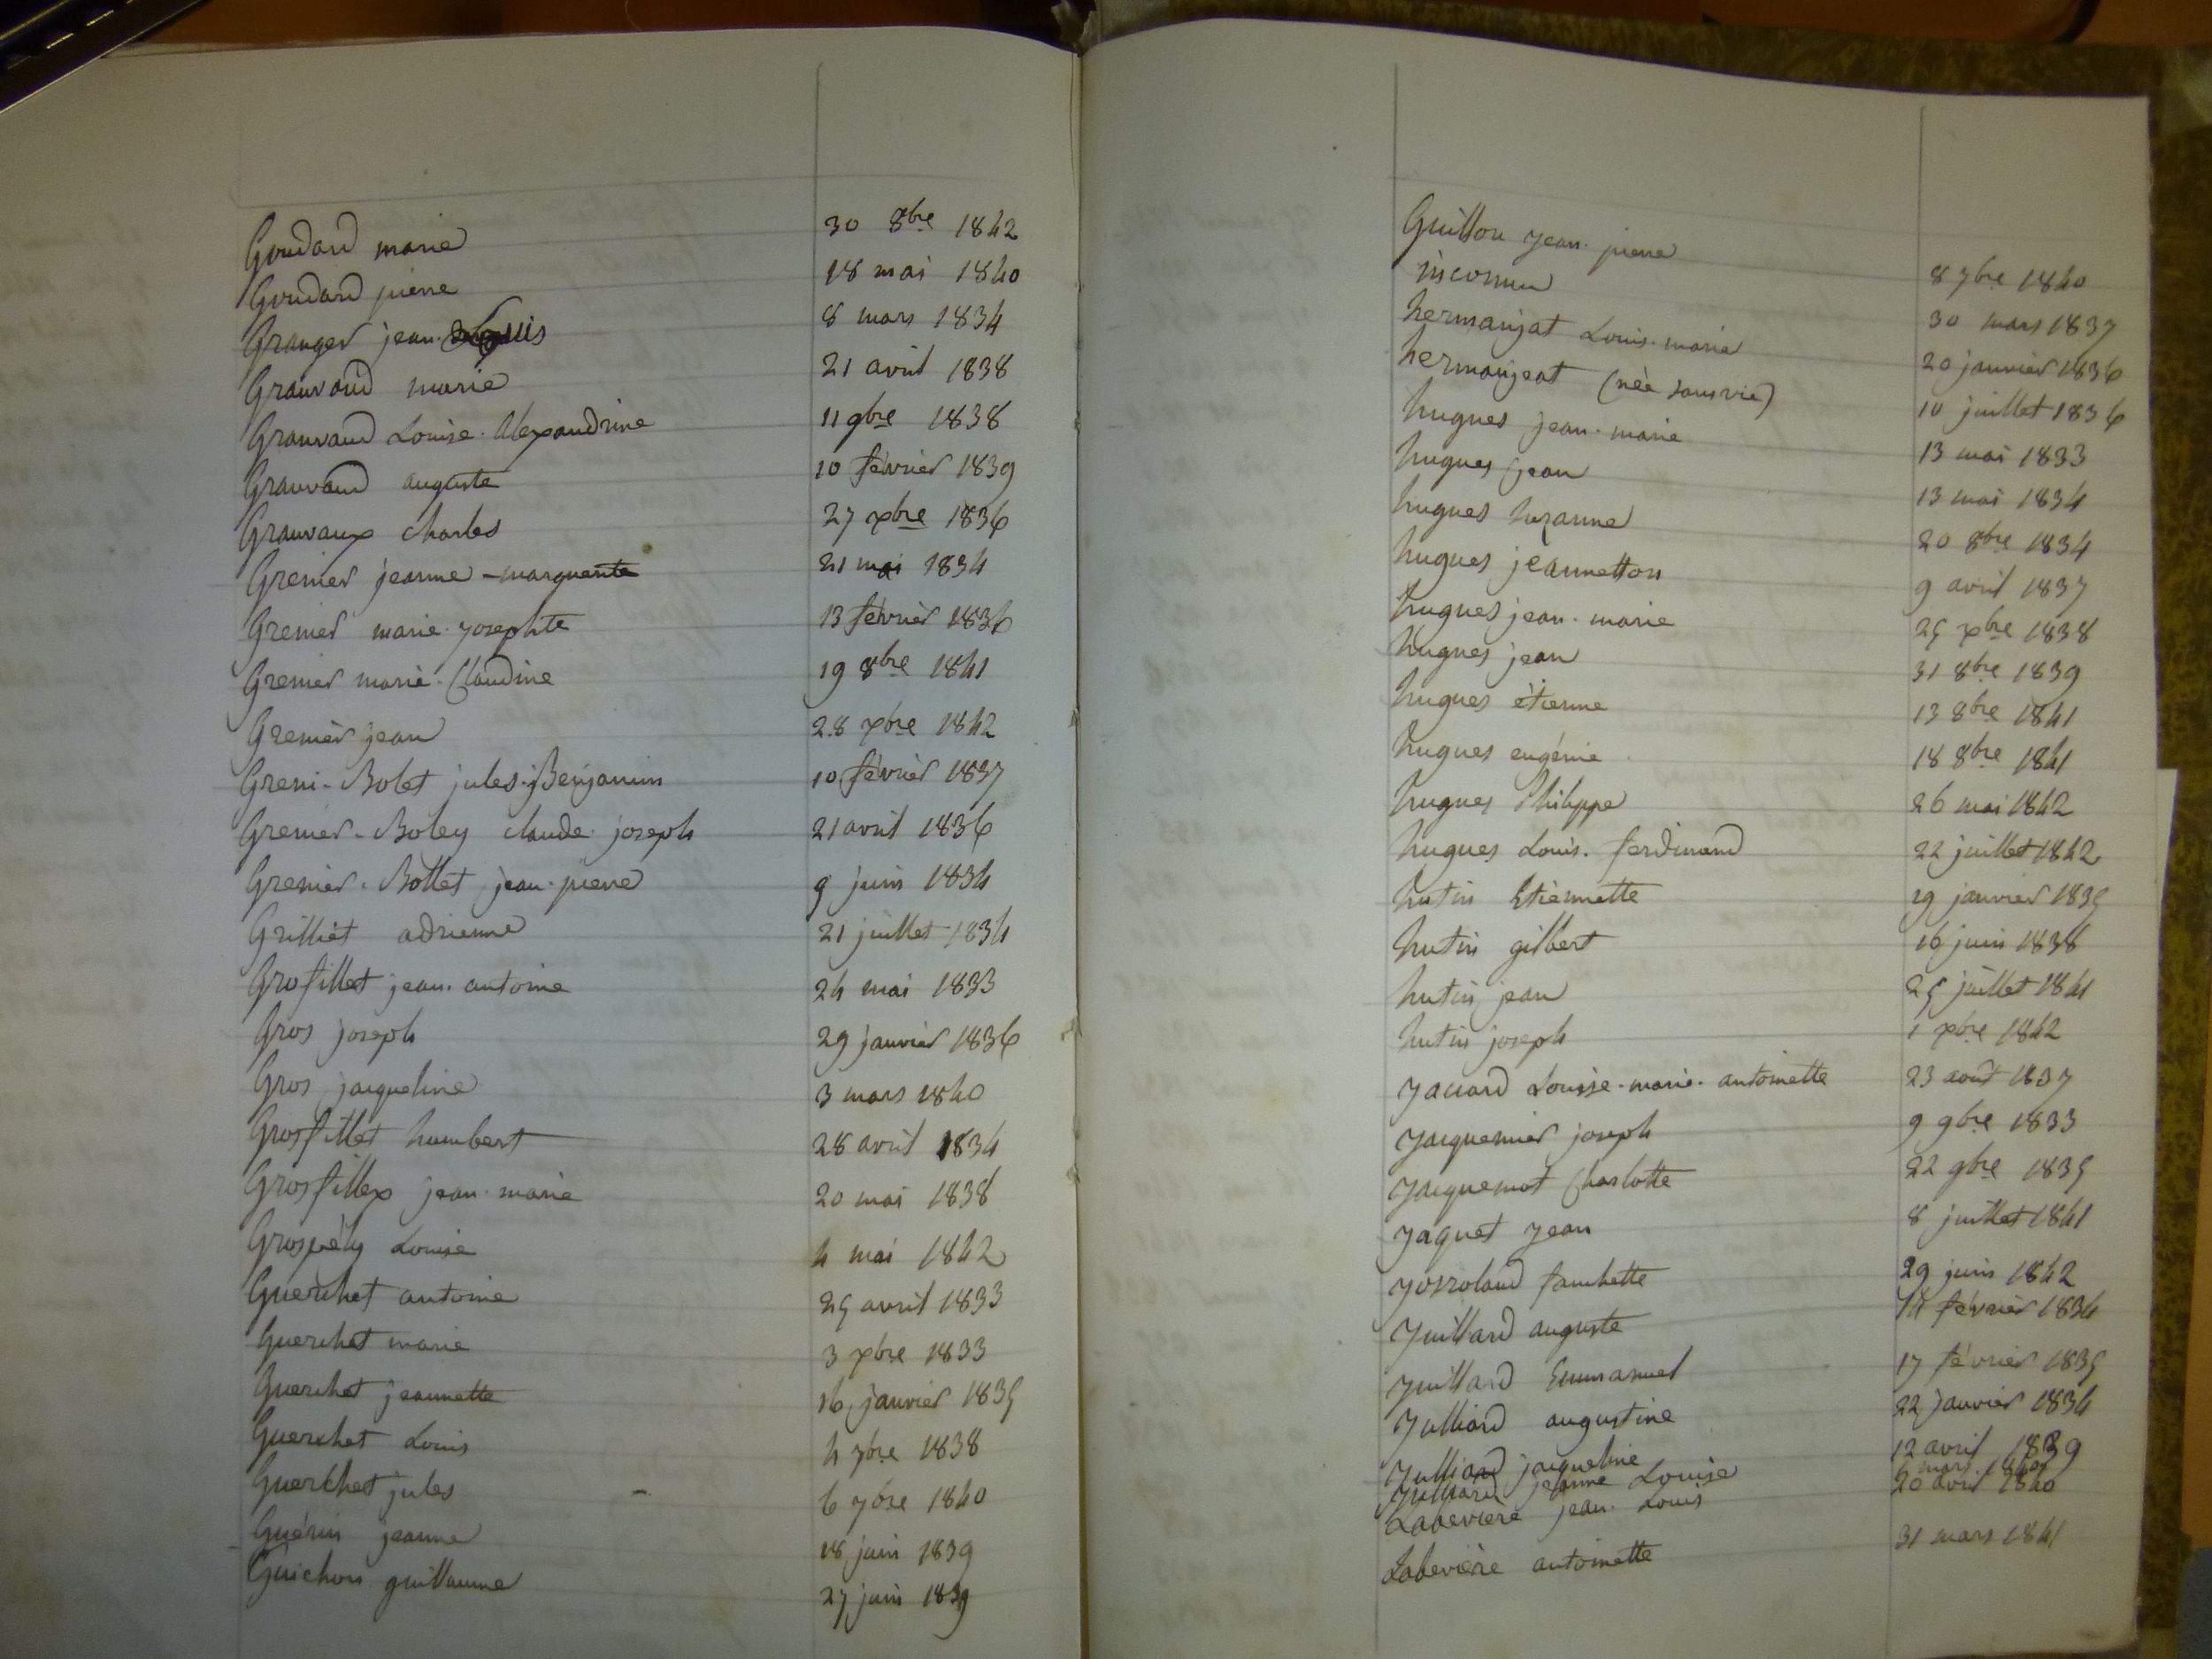 Goudard marie 30 8bre 1842
Goudard pierre 18 mai 1840
Granger jean Louis 8 mars 1834
Granvaud marie 21 avril 1838
Granvaud Louise. Alexandrine 11 9bre 1838
Granvaud auguste 10 février 1839
Granvaux charles 27 xbre 1836
Grenier jeanne-marguerite 21 mai 1834
Grenier marie. josephte 13 février 1836
Grenier marie. Claudine 19 8bre 1841
Grenier jean 28 xbre 1842
Greni-Bolet jules. Benjamin 10 février 1837
Grenier-Boley claude. joseph 21 avril 1836
Grenier-Bottet jean. pierre 9 juin 1834
Grilliet adrienne 21 juillet 1834
Grofillet jean. antoine 24 mai 1833
Gros joseph 29 janvier 1836
Gros jacqueline 3 mars 1840
Grosfillet humbert 28 avril 1834
Grosfillex jean. marie 20 mai 1838
Louise 4 mai 1842
Guerchet antoine 25 avril 1833
Guerchet marie 3 xbre 1833
Guerchet jeannette 16 janvier 1835
Guerchet Louis 4 7bre 1838
Guerchet jules 6 7bre 1840
Guérin jeanne 18 juin 1839
Guichon guillaume 27 juin 1839
Guillon jean. pierre 8 7bre 1840
inconnu 30 mars 1837
hermanjat Louis. marie 20 janvier 1836
hermanjeat (née sonvie) 10 juillet 1836
hugues jean. marie 13 mai 1833
hugues jean 13 mai 1834
hugues 20 8bre 1834
hugues jeannetton 9 avril 1837
hugues jean. marie 25 xbre 1838
hugues jean 31 8bre 1839
hugues étienne 13 8bre 1841
hugues eugénie 18 8bre 1841
hugues Philippe 26 mai 1842
hugues Louis. ferdinand 22 juillet 1842
hutin Etiennette 29 janvier 1835
hutin gilbert 16 juin 1838
hutin jean 25 juillet 1841
hutin joseph 1 xbre 1842
jaccard Louise. marie. antoinette 23 août 1837
jacquemier joseph 9 9bre 1833
jacquemot Charlotte 22 9bre 1835
jaquet jean 8 juillet 1841
josroland fanchette 29 juin 1842
juillard auguste 14 février 1834
juillard Emmanuel 17 février 1835
julliard augustine 22 janvier 1834
julliard jacqueline 12 avril 1839
julliard jeanne Louise mars
Labevière jean. Louis 20 avril 1840
Labevière antoinette 31 mars 1841